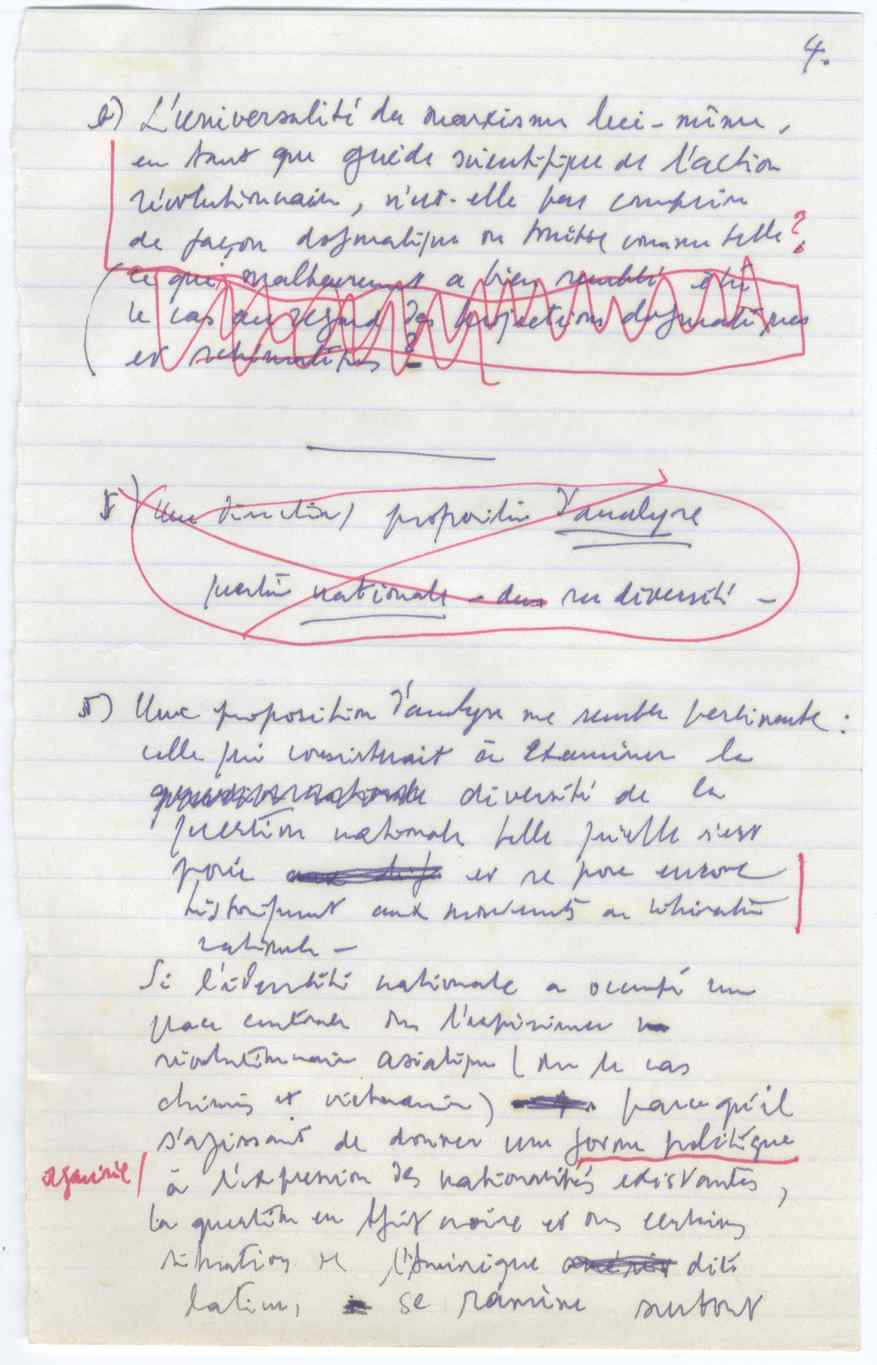 4.
L'universalité du marxisme lui-même,
en tant que guide scientifique de l'action
révolutionnaire, n'est-elle pas comprise
de façon dogmatique ou traitée comme telle ?
(ce qui malheureusement a bien semblé été
le cas au regard des projections dogmatiques
et schématiques ?
Une direction / proposition d'analyse
question nationale - sa diversité -
5) Une proposition d'analyse me semble pertinente :
celle qui consisterait à examiner la
diversité de la
question nationale telle qu'elle s'est
posée et se pose encore
historiquement aux mouvements de libération
nationale -
Si l'identité nationale a occupé une
place centrale dans l'expérience
révolutionnaire asiatique (dans le cas
chinois et vietnamien) parce qu'il
s'agissait de donner une forme politique
à l'expression des nationalités existantes,
la question en Afrique noire et dans certaines
situations de l'Amérique dite
latine, se ramène surtout